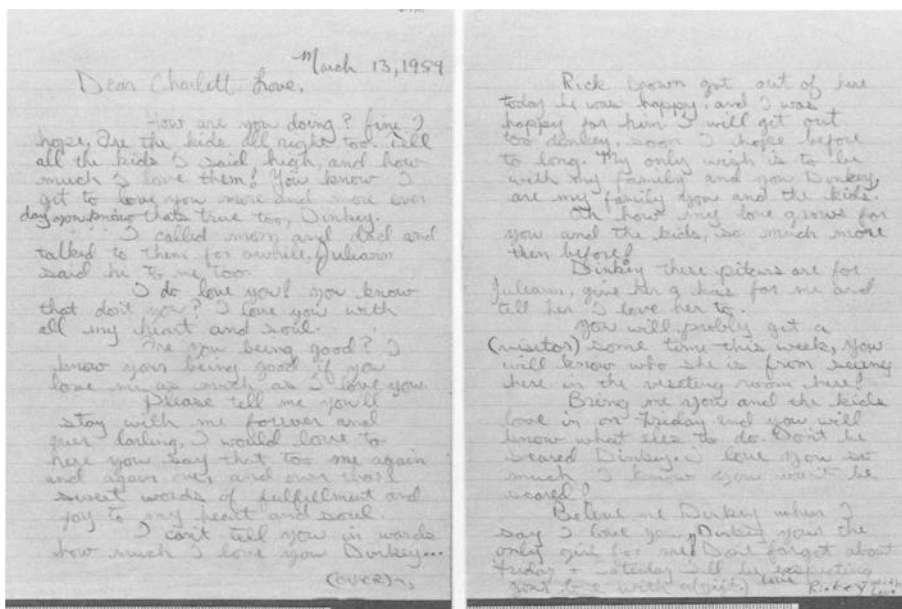 March 13, 1959
Dear Charlett Love,
How are you doing? fine I
hope. Are the kids all right too. Tell
all the kids I said high, and how
much I love them! You know I
get to love you more and more ever
day you know thats true too, Dinkey.
I called mom and dad and
talked to them for awhile, Juliann
said hi to me too.
I do love you! you know
that don't you? I love you with
all my heart and soul.
Are you being good? I
know your being good if you
love me as much as I love you.
Please tell me you'll
stay with me forever and
ever I would love to
here you say that too me again
and again over and over
sweet words of fulfillment and
joy to my heart and soul.
I can't tell you in words
how much I love you Dinkey...
(OVER)
Rick Brown got out of here
today he was happy, and I was
happy for him. I will get out
too dinkey, soon I hope before
to long. My only wish is to be
with my family and you Dinkey,
are my family you and the kids.
Oh how my love grows for
you and the kids, so much more
then before!
Dinkey these piturs are for
Juliann, give her a kiss for me and
tell her I love her to.
You will probly get a
(visetor) some time this week, you
will know who she is from seieng
here in the viseting room here!
Bring me you and the kids
love in on Friday and you will
know what eles to do. Don't be
scared Dinkey. I love you so
much I know you won't be
scared!
Beleive me Dinkey when I
say I love you, Dinkey you the
only girl for me! Dont forget about
Friday + Saterday I'll be expecting
your love with Love
Rickey with Love